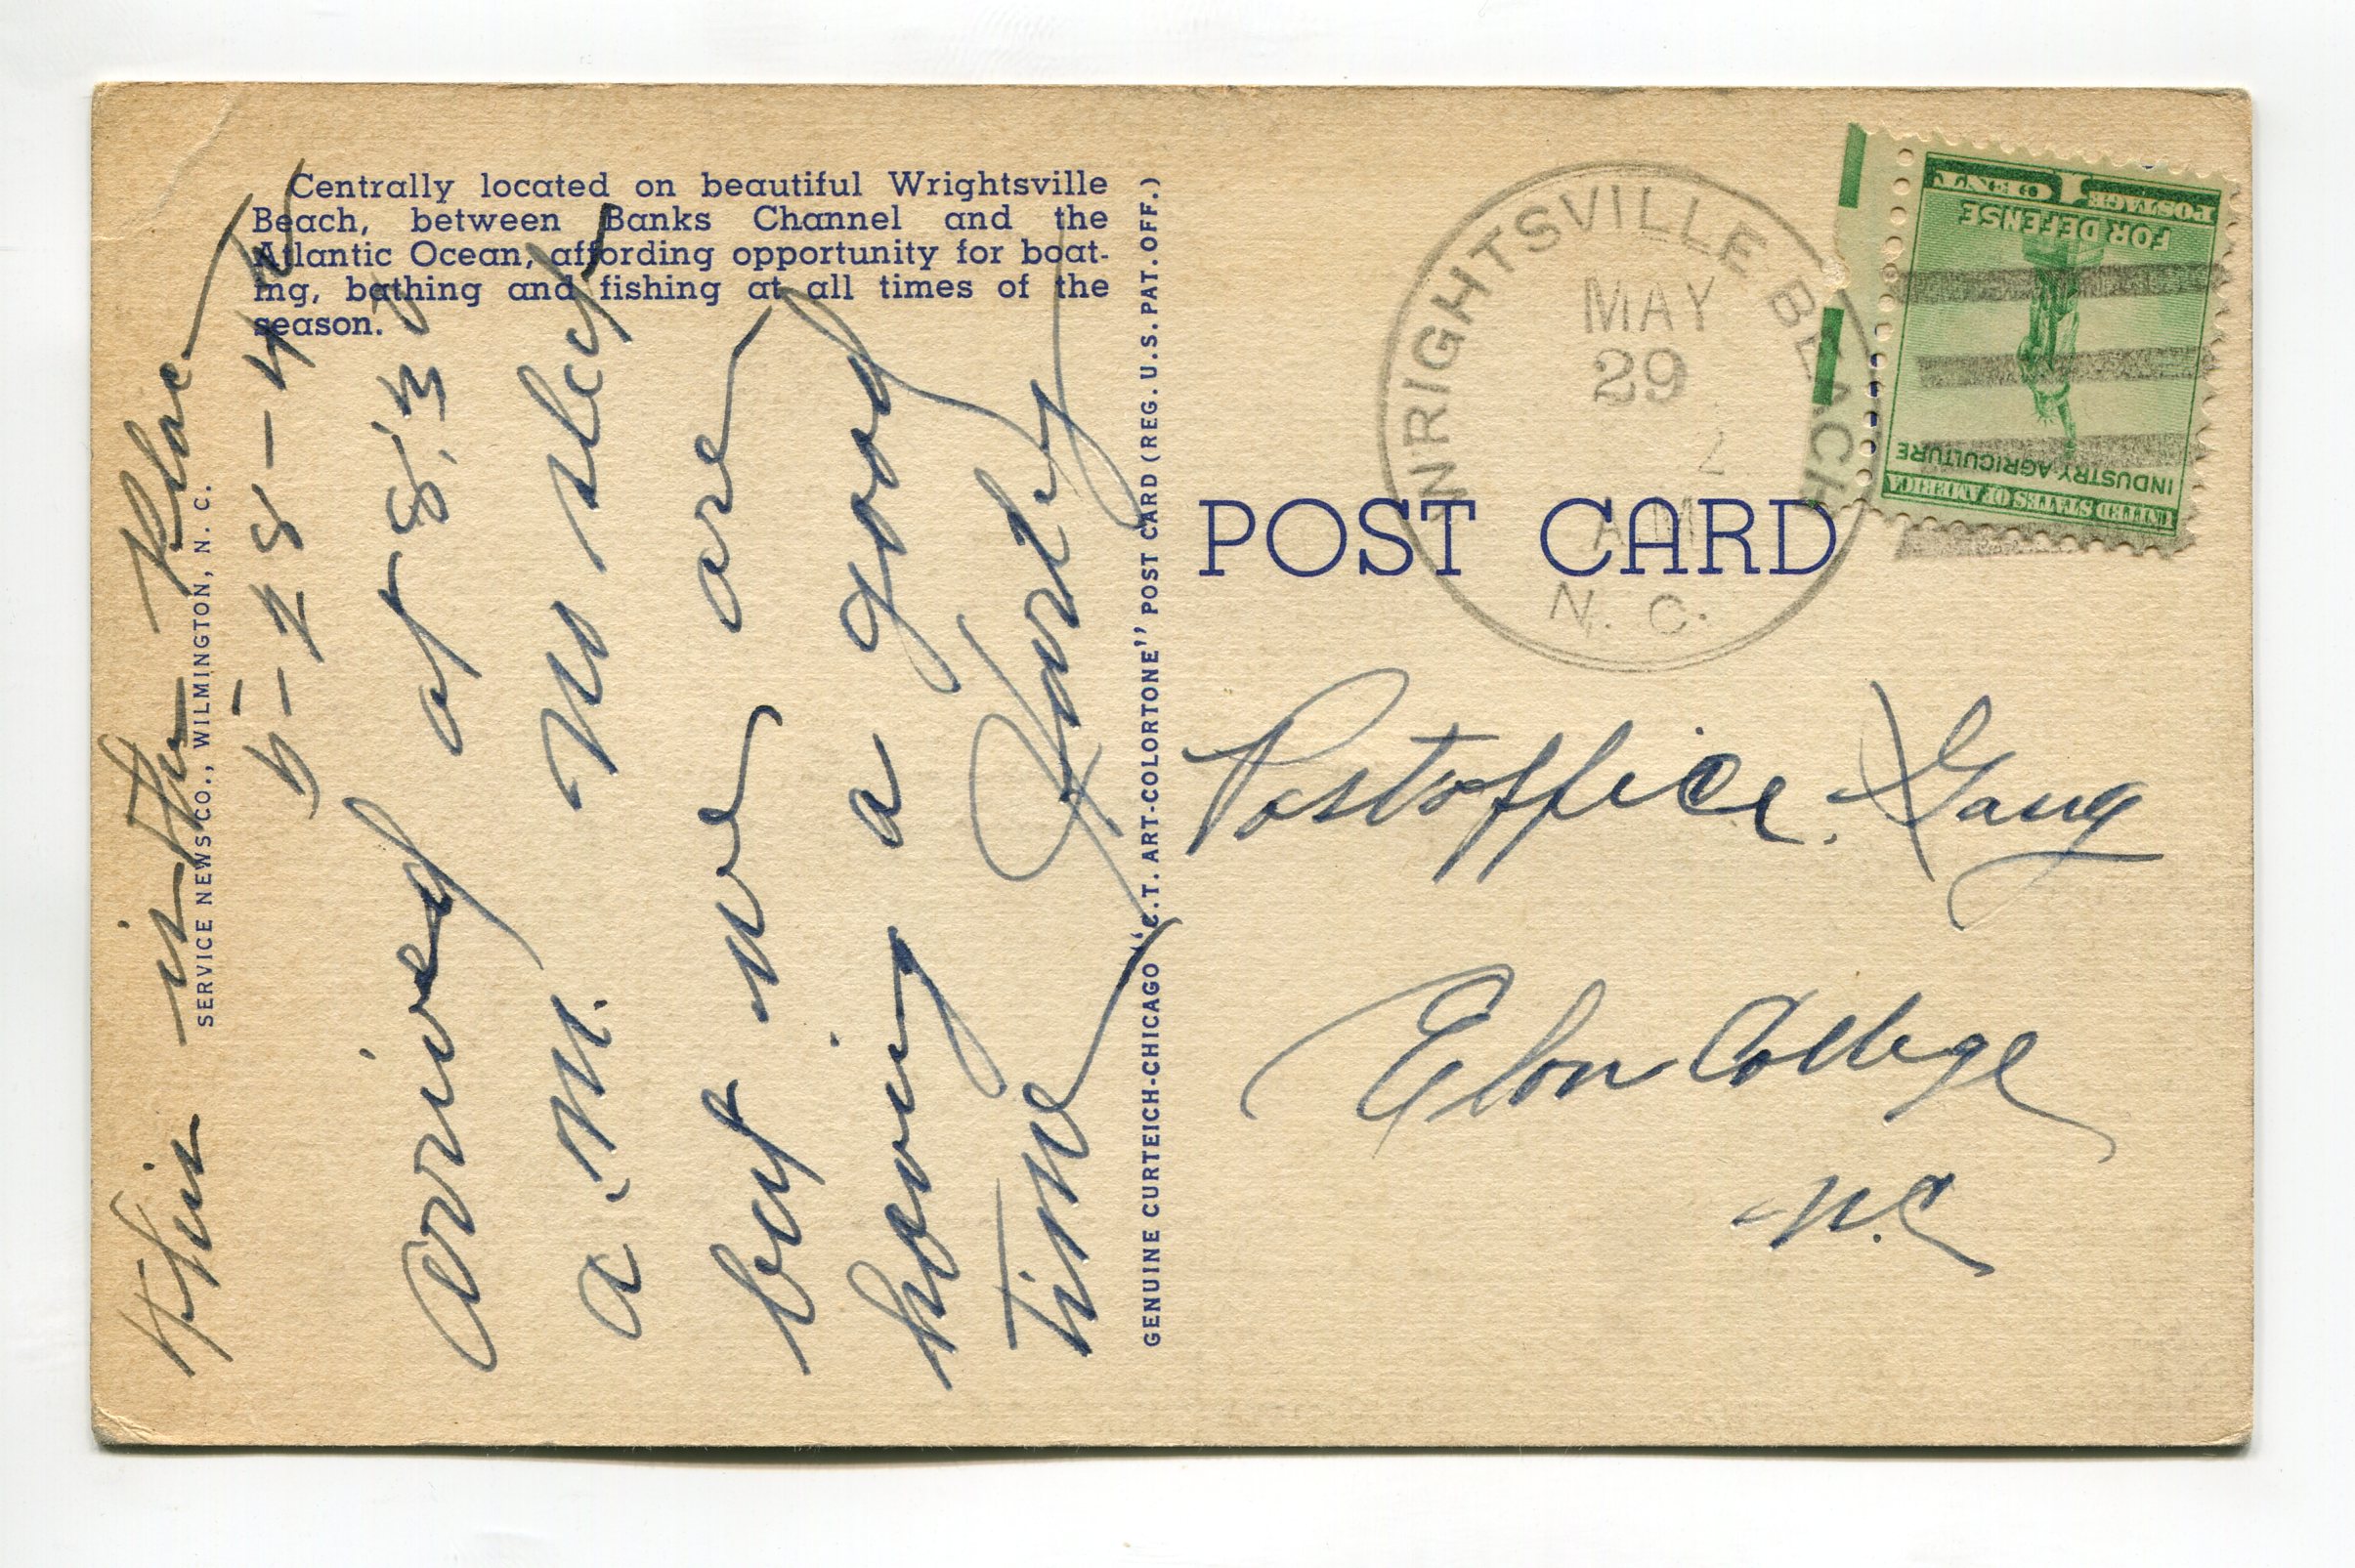 Centrally located on beautiful Wrightsville
Beach, between Banks Channel and the
Atlantic Ocean, affording opportunity for boat-
ing, bathing and fishing at all times of the
season.
SERVICE NEWS CO., WILMINGTON, N. C.
This is the Place
5-28-42
arrived at 8:30
a.m. no sleep
but we are
having a good
Time
GENUINE CURTEICH-CHICAGO "C.T. ART-COLORTONE" POST CARD (REG. U.S. PAT. OFF.)
POST CARD
WRIGHTSVILLE BEACH
MAY
29
2
AM
N. C.
UNITED STATES OF AMERICA
INDUSTRY AGRICULTURE
FOR DEFENSE
POSTAGE 1 CENT
Postoffice Gang
Elon College
N.C